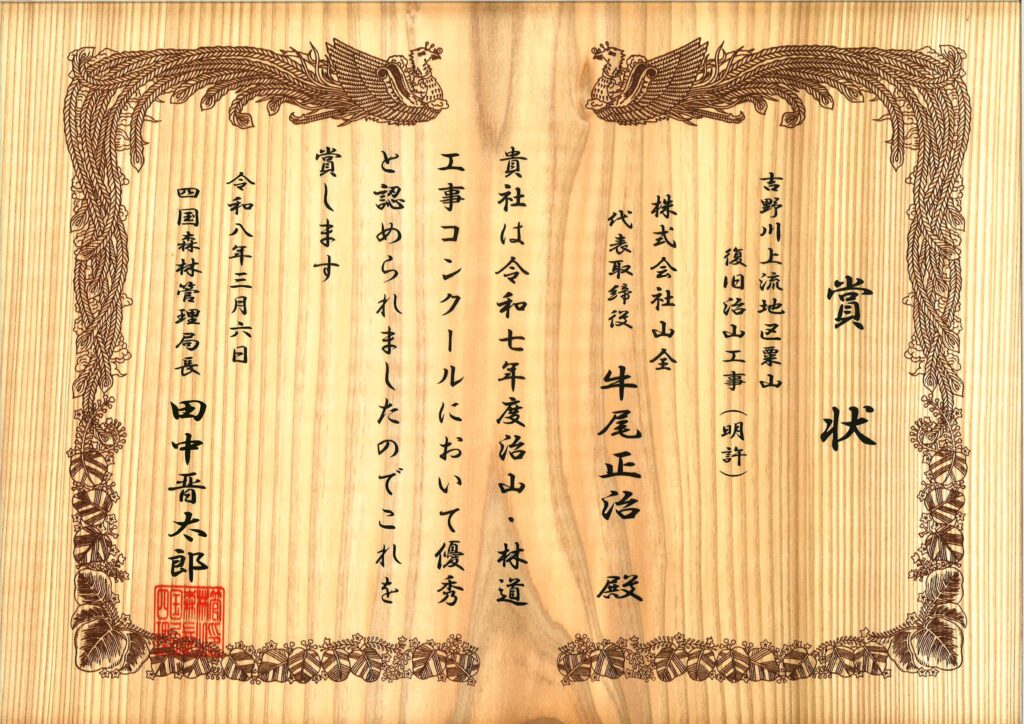 賞状
吉野川上流地区粟山
復旧治山工事（明許）
株式会社山全
代表取締役 牛尾正治 殿
貴社は令和七年度治山・林道
工事コンクールにおいて優秀
と認められましたのでこれを
賞します
令和八年三月六日
四国森林管理局長 田中晋太郎